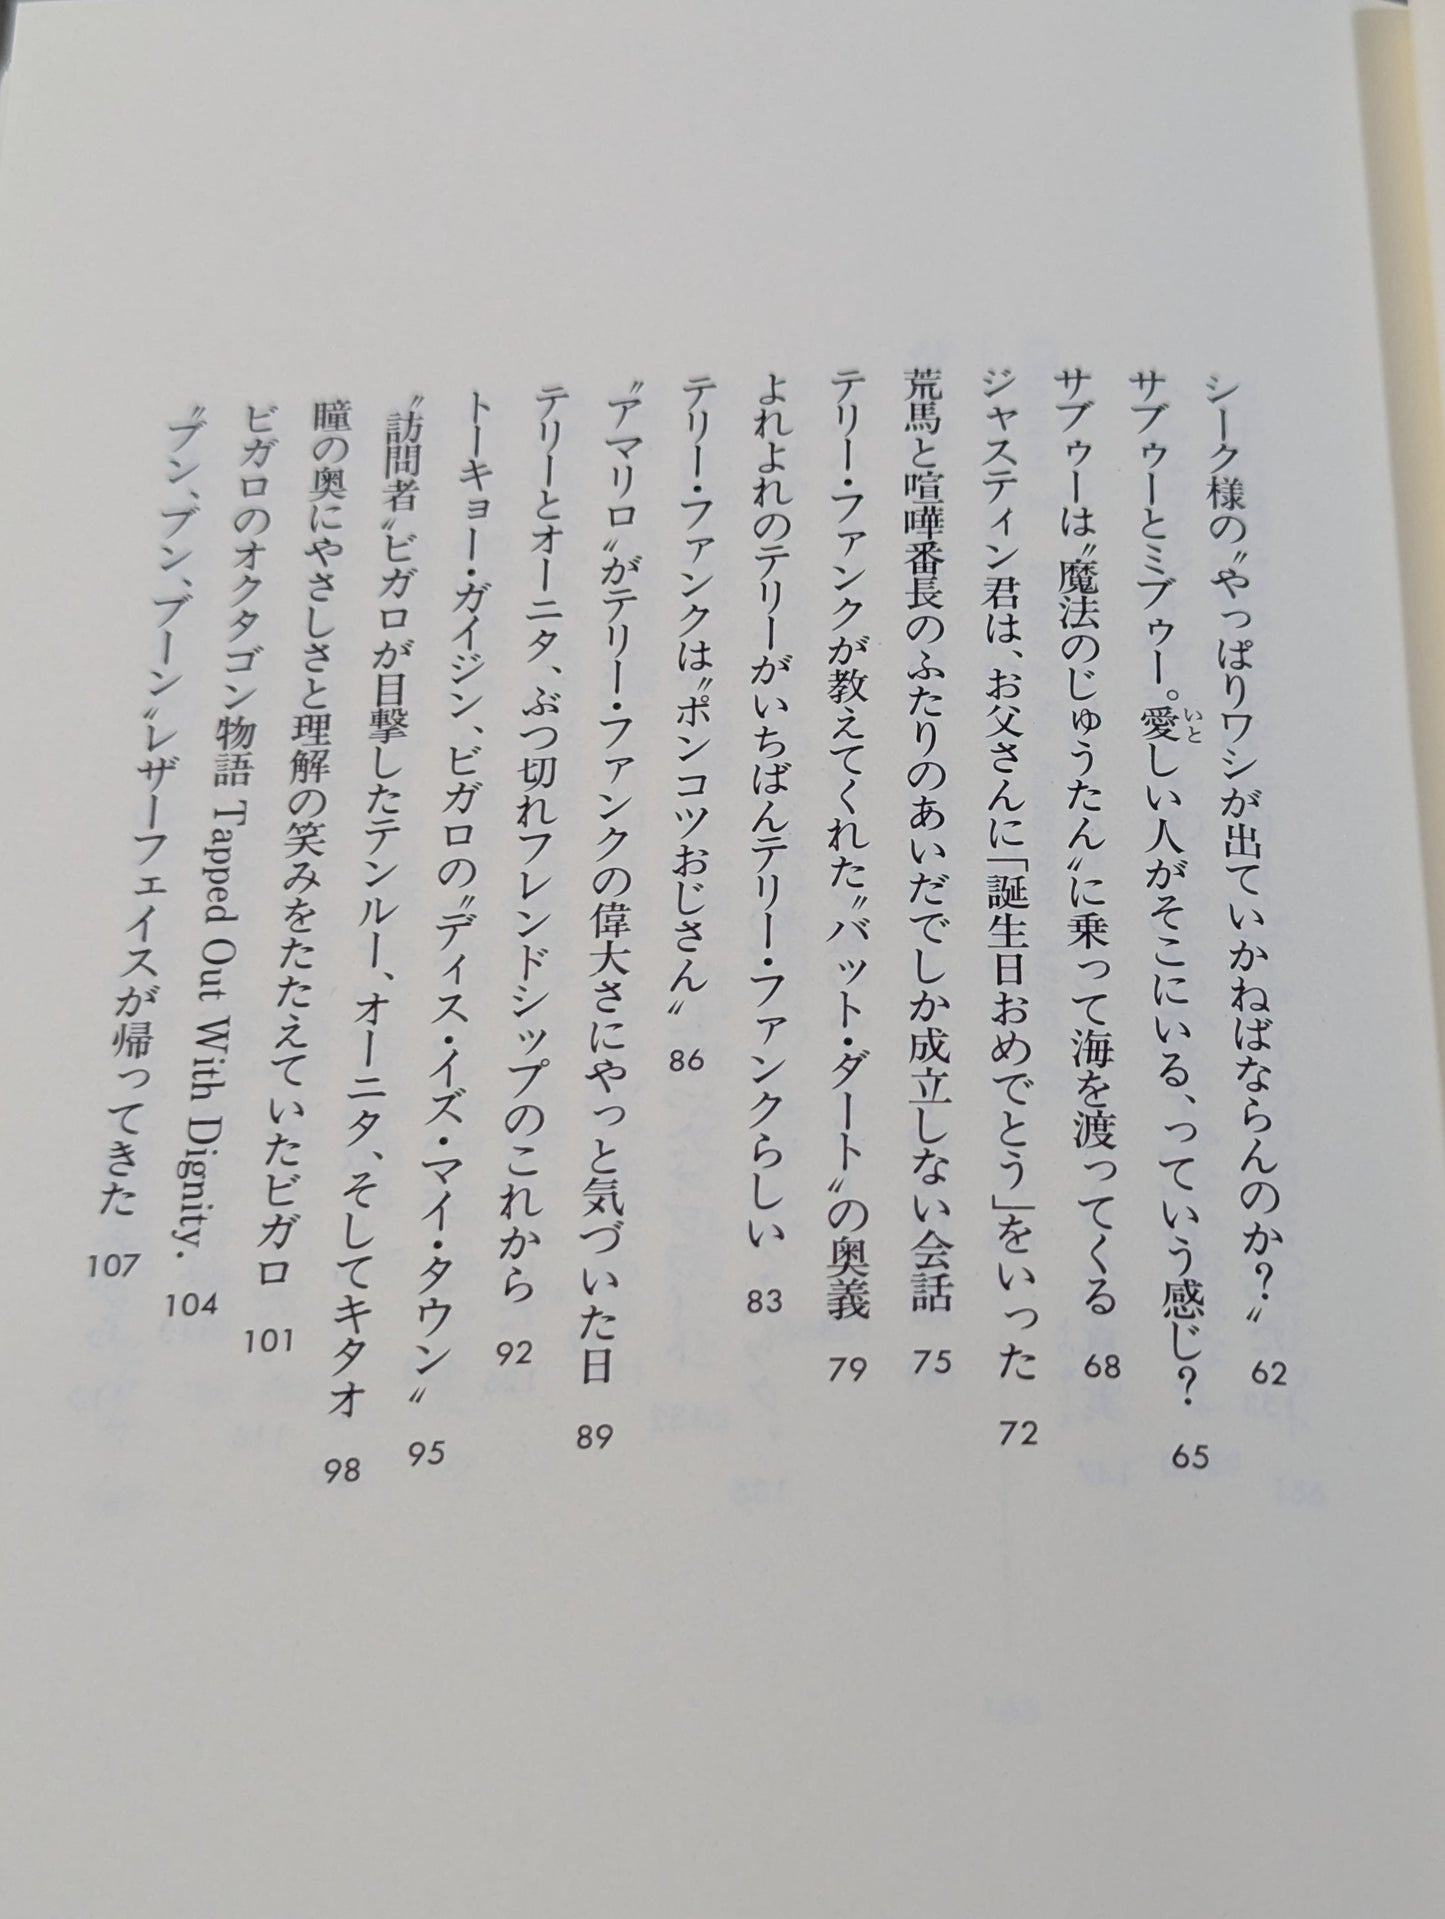 シーク様の〝やっぱりワシが出ていかねばならんのか？〟 62
サブゥーとミブゥー。愛しい人がそこにいる、っていう感じ？ 65
いと
サブゥーは〝魔法のじゅうたん〟に乗って海を渡ってくる 68
ジャスティン君は、お父さんに「誕生日おめでとう」をいった 72
荒馬と喧嘩番長のふたりのあいだでしか成立しない会話 75
テリー・ファンクが教えてくれた〝バット・ダート〟の奥義 79
よれよれのテリーがいちばんテリー・ファンクらしい 83
テリー・ファンクは〝ポンコツおじさん〟 86
〝アマリロ〟がテリー・ファンクの偉大さにやっと気づいた日 89
テリーとオーニタ、ぶつ切れフレンドシップのこれから 92
トーキョー・ガイジン、ビガロの〝ディス・イズ・マイ・タウン〟 95
〝訪問者〟ビガロが目撃したテンルー、オーニタ、そしてキタオ 98
瞳の奥にやさしさと理解の笑みをたたえていたビガロ 101
ビガロのオクタゴン物語 Tapped Out With Dignity. 104
〝ブン、ブン、ブーン〟レザーフェイスが帰ってきた 107